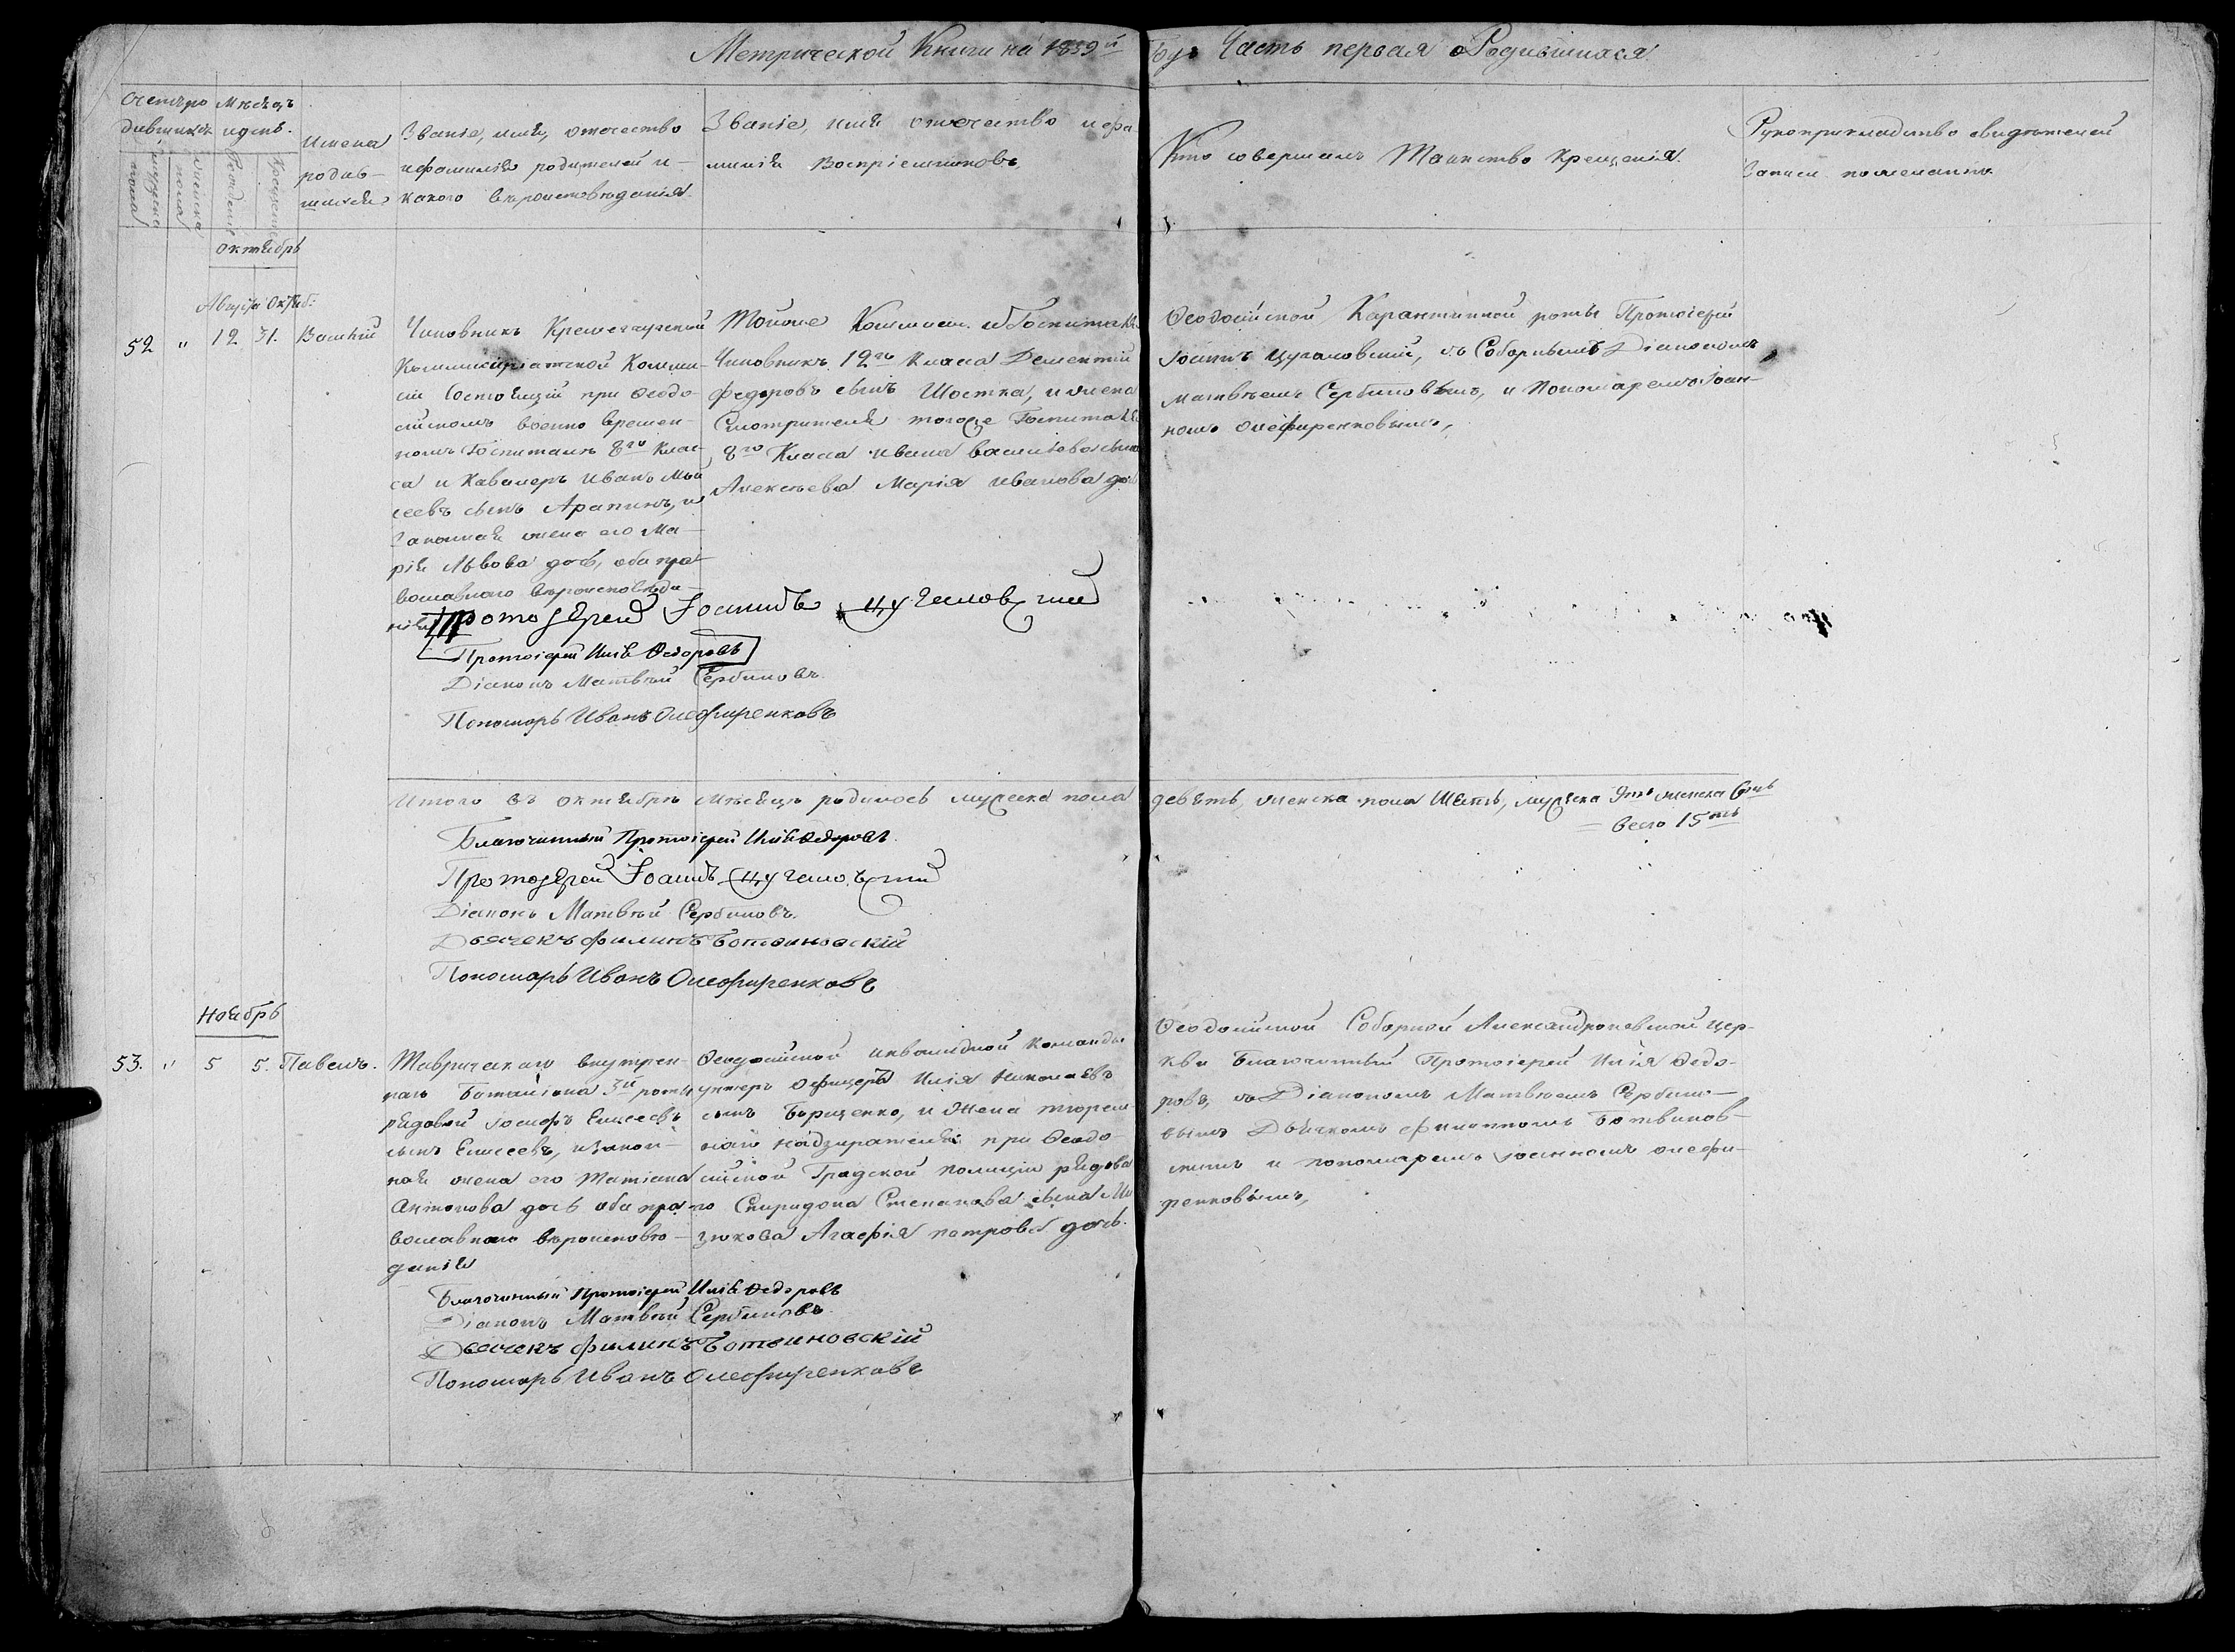 Метрической Книги на 1839й Годъ Часть первая о Родившихся
Счетъ родившихся
Мѣсяцъ и день.
мужеска пола
женска пола
Рожденіе
Крещеніе
Имена родив-
шихся
Званіе, имя, отечество
и фамилія родителей и
какого вѣроисповѣданія.
Званіе, имя отечество и фа-
милія Воспріемниковъ
Кто совершалъ Таинство Крещенія.
Рукоприкладство свидѣтелей
записи по желанію
Октябрь
Августа Октяб:
52 " 12 31. Василій
Чиновникъ Кременчугской
Коммисаріатской Коммис-
сіи Состоящій при Ѳеодо-
сійскомъ военно времен-
номъ Госпиталѣ 8го клас-
са и Кавалеръ Иванъ Мои
сеевъ сынъ Арапинъ, и
Законная жена его Ма-
рія Львова дочь, оба пра-
вославнаго вѣроисповѣда-
нія
Тойже Коммис. и Госпиталя
Чиновникъ 12го Класса Дементій
Федоровъ сынъ Шостка, и жена
Смотрителя тогоже Госпиталя
8го Класса Ивана васильева сына
Алексѣева Марія иванова дочь
Ѳеодосійской Карантинной роты Протоіерей
Іоаннъ Цугаловскій, съ Соборнымъ Діакономъ
Матвѣемъ Сербиновымъ, и Пономаремъ Іоан-
номъ Олефиренковымъ,
Протоіерей Іоаннъ
Протоіерей Илія Ѳедоровъ
Діаконъ Матвѣй Сербиновъ.
Пономарь Иванъ Олефиренковъ
Итого въ Октябрѣ Мѣсяцѣ родилось мужеска пола девять, женска пола Шесть, мужска 9ть женска 6ть
всего 15ть
Благочинный Протоіерей Илія Ѳедоровъ.
Протоіерей Іоаннъ
Діаконъ Матвѣй Сербиновъ.
Дьячекъ Филипъ Ботвиновскій
Пономарь Иванъ Олефиренковъ
Ноябрь
53. " 5 5. Павелъ.
Таврическаго внутрен-
наго Баталіона 3й роты
рядовой Іосифъ Елисеевъ
сынъ Елисеевъ, и закон-
ная жена его Татіана
Антонова дочь оба пра-
вославнаго вѣроисповѣ-
данія
Ѳеодосійской инвалидной Команды
унтеръ офицеръ Илія Николаевъ
сынъ Борщенко, и Жена тюрем-
наго надзирателя при Ѳеодо-
сійской Градской полиціи рядова-
го Спиридона Степанова сына
Агафія петрова дочь.
Ѳеодосійской Соборной Александроневской Цер-
кви Благочинный Протоіерей Илія Ѳедо-
ровъ, съ Діакономъ Матвѣемъ Сербино-
вымъ Дьячкомъ Филиппомъ Ботвинов-
скимъ и пономаремъ Іоанномъ олефи-
ренковымъ,
Благочинный Протоіерей Илія Ѳедоровъ
Діаконъ Матвѣй Сербиновъ.
Дьячекъ Филипъ Ботвиновскій
Пономарь Иванъ Олефиренковъ